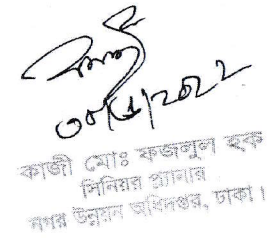 ৩০/৫/২০২২
কাজী মোঃ ফজলুল হক
সিনিয়র প্ল্যানার
নগর উন্নয়ন অধিদপ্তর, ঢাকা।